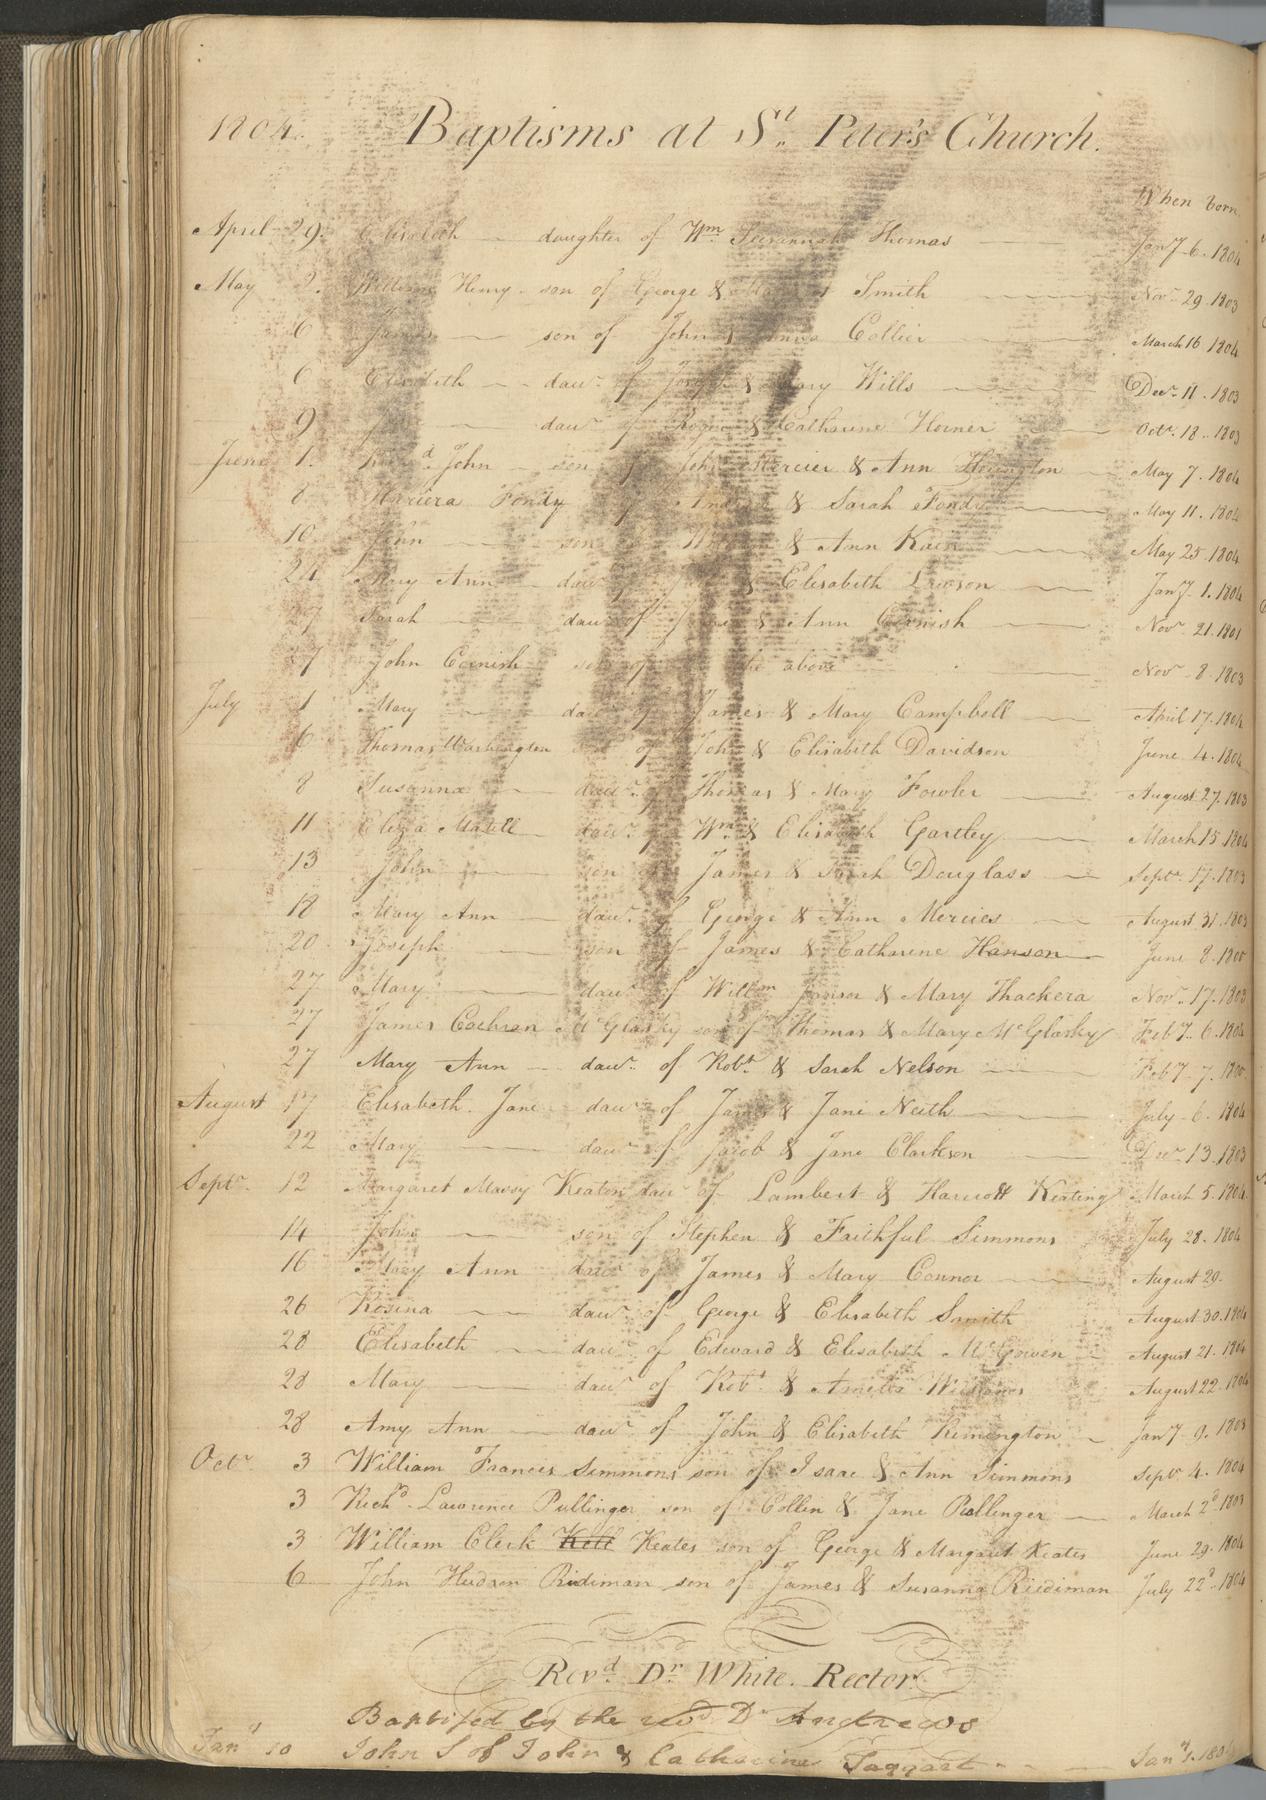 1804. Baptisms at St. Peter's Church.
When born.
April 29. Elisabeth daughter of Wm Susannah Thomas Jany 6. 1804
May 2. William Henry son of George & Smith Novr 29. 1803
6 James son of John & Collier March 16 1804
6 Elisabeth dawr of Joseph & Mary Wills Decr 11. 1803
9 dawr of & Catharine Horner Octr 18. 1803
June 1. John son of John Mercier & Ann May 7. 1804
8 Fondy of & Sarah Fondy May 11. 1804
10 John son of William & Ann Kain May 25 1804
24 Mary Ann dawr of & Elisabeth Lawson Jany 1. 1804
27 Sarah dawr of James & Ann Cornish Novr 21. 1801
27 John Cornish son of the above Novr 8. 1803
July 1 Mary dawr of James & Mary Campbell April 17. 1804
6 Thomas Washington son of John & Elisabeth Davidson June 4. 1804
8 Susanna dawr of Thomas & Mary Fowler August 27. 1803
11 Eliza dawr of Wm & Elisabeth Gartley March 15 1804
13 John son of James & Sarah Douglass Septr 17. 1803
18 Mary Ann dawr of George & Ann Mercies August 31. 1803
20 Joseph son of James & Catharine Hanson June 8. 1800
27 Mary dawr of Willm & Mary Thackera Novr 17. 1803
27 James Cochran McGlasky son of Thomas & Mary McGlasky Feby 6. 1804
27 Mary Ann dawr of Robt & Sarah Nelson Feby 7. 1800
August 17 Elisabeth Jane dawr of James & Jane Neith July 6. 1804
22 Mary dawr of Jacob & Jane Clarkson Decr 13. 1803
Septr. 12 Margaret Massy Keaton dawr of Lambert & Harriott Keating March 5. 1804
14 John son of Stephen & Faithful Simmons July 28. 1804
16 Mary Ann dawr of James & Mary Connor August 29.
26 Rosina dawr of George & Elisabeth Smith August 30. 1804
28 Elisabeth dawr of Edward & Elisabeth McGowen August 21. 1804
28 Mary dawr of Robt & Amelia Williams August 22. 1804
28 Amy Ann dawr of John & Elisabeth Remington Jany 9. 1803
Octr 3 William Francis Simmons son of Isaac & Ann Simmons Septr 4. 1804
3 Richd Lawrence Pullinger son of Collin & Jane Pullenger March 2d 1803
3 William Clerk Kell Keates son of George & Margaret Keates June 29. 1804
6 John Hudson Ridiman son of James & Susanna Riediman July 22d 1804
Revd. Dr. White. Rector.
Baptised by the revd. Dr Andrews
Jany 10 John S of John & Catharine Taggart Jany 1. 180